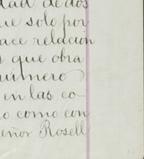 dad de dos
ue solo por
ace relacion
s que obra
numero
en las co-
o como con
eñor Rosell